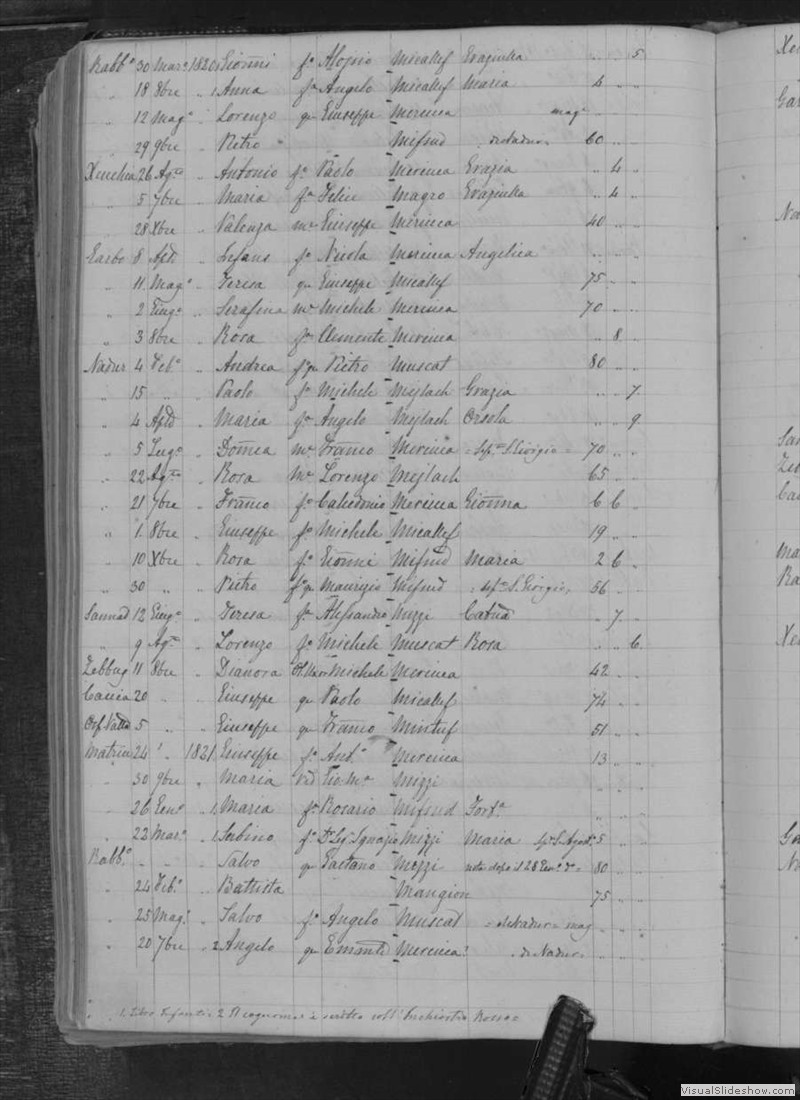 Rabb.o 30 Mar.o 1820 Giõnni f.o Aloisio Micallef Graziulla " " 5
" 18 8bre " 1 Anna f.a Angelo Micallef Maria 4 " "
" 12 Mag.o " Lorenzo q.m Giuseppe Mercieca mag.e "
" 29 9bre " Pietro " Mifsud deNadur 60 " "
Xeuchia 26 Ag.to " Antonio f.o Paolo Mercieca Grazia " 4 "
" 5 7bre " Maria f.a Felice Magro Graziulla " 4 "
" 28 Xbre " Valenza m.e Giuseppe Mercieca 40 " "
Garbo 8 Aple " Infans f.o Nicola Mercieca Angelica " " "
" 11 Mag.o " Teresa q.m Giuseppe Micallef 75 " "
" 2 Giug.o " Serafina m.e Michele Mercieca 70 " "
" 3 8bre " Rosa f.a Clemente Mercieca " 8 "
Nadur 4 Feb.o " Andrea f.q. Pietro Muscat 80 " "
" 15 " " Paolo f.o Michele Mejlach Grazia " " 7
" 4 Aple " Maria f.a Angelo Mejlach Orsola " " 9
" 5 Lug.o " Domca m.e Franco Mercieca S. Giorgio 70 " "
" 22 Ag.to " Rosa m.e Lorenzo Mejlach 65 " "
" 21 7bre " Franco f.o Calcedonio Mercieca Giõnna 6 6 "
" 1 8bre " Giuseppe f.o Michele Micallef 19 " "
" 10 Xbre " Rosa f.a Giõnni Mifsud Maria 2 6 "
" 30 " " Pietro f.q. Maurizio Mifsud S. Giorgio 56 " "
Sannad 12 Giug.o " Teresa f.a Alessandro Mizzi Catna " 7 "
" 9 Ag.to " Lorenzo f.o Michele Muscat Rosa " " 6
Zebbug 11 8bre " Dianora Michele Mercieca 42 " "
Caccia 20 " " Giuseppe q.m Paolo Micallef 74 " "
5 " " Giuseppe q.m Franco Mintuf 51 " "
Matrice 24 " 1821 Giuseppe f.o Ant.o Mercieca 13 " "
" 30 9bre " Maria Vid. Gio: M.a Mizzi " "
" 26 Gen.o " 1 Maria f.a Rosario Mifsud Fort.a " " "
" 22 Mar.o " 1 Sabino f.o Ignazio Mizzi Maria 5 " "
Rabb.o " " " Salvo q.m Gaetano Mizzi 80 " "
" 24 Feb.o " Battista Mangion 75 " "
" 25 Mag.o " Salvo f.o Angelo Muscat deNadur mag.
" 20 7bre " 2 Angelo q.m Emanle Mercieca! de Nadur
1. Libro Infanti 2 Il cognome è scritto coll' Inchiostro Rosso
VisualSlideshow.com